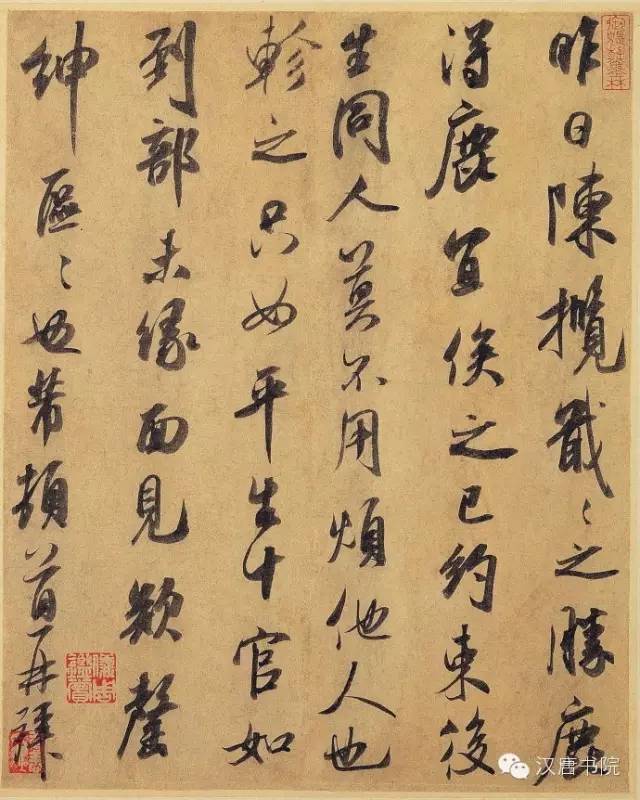 昨日陳攬戢〻之勝鹿
得鹿宜俟之已約束後
生同人莫不用煩他人也
軫之只如平生十官如
到部未緣面見欲罄
紳區〻也芾頓首再拜
汉唐书院